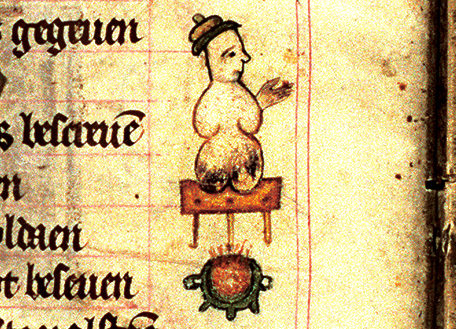 s gegeuen
s bescreuē
n
oldaen
ot beseuen